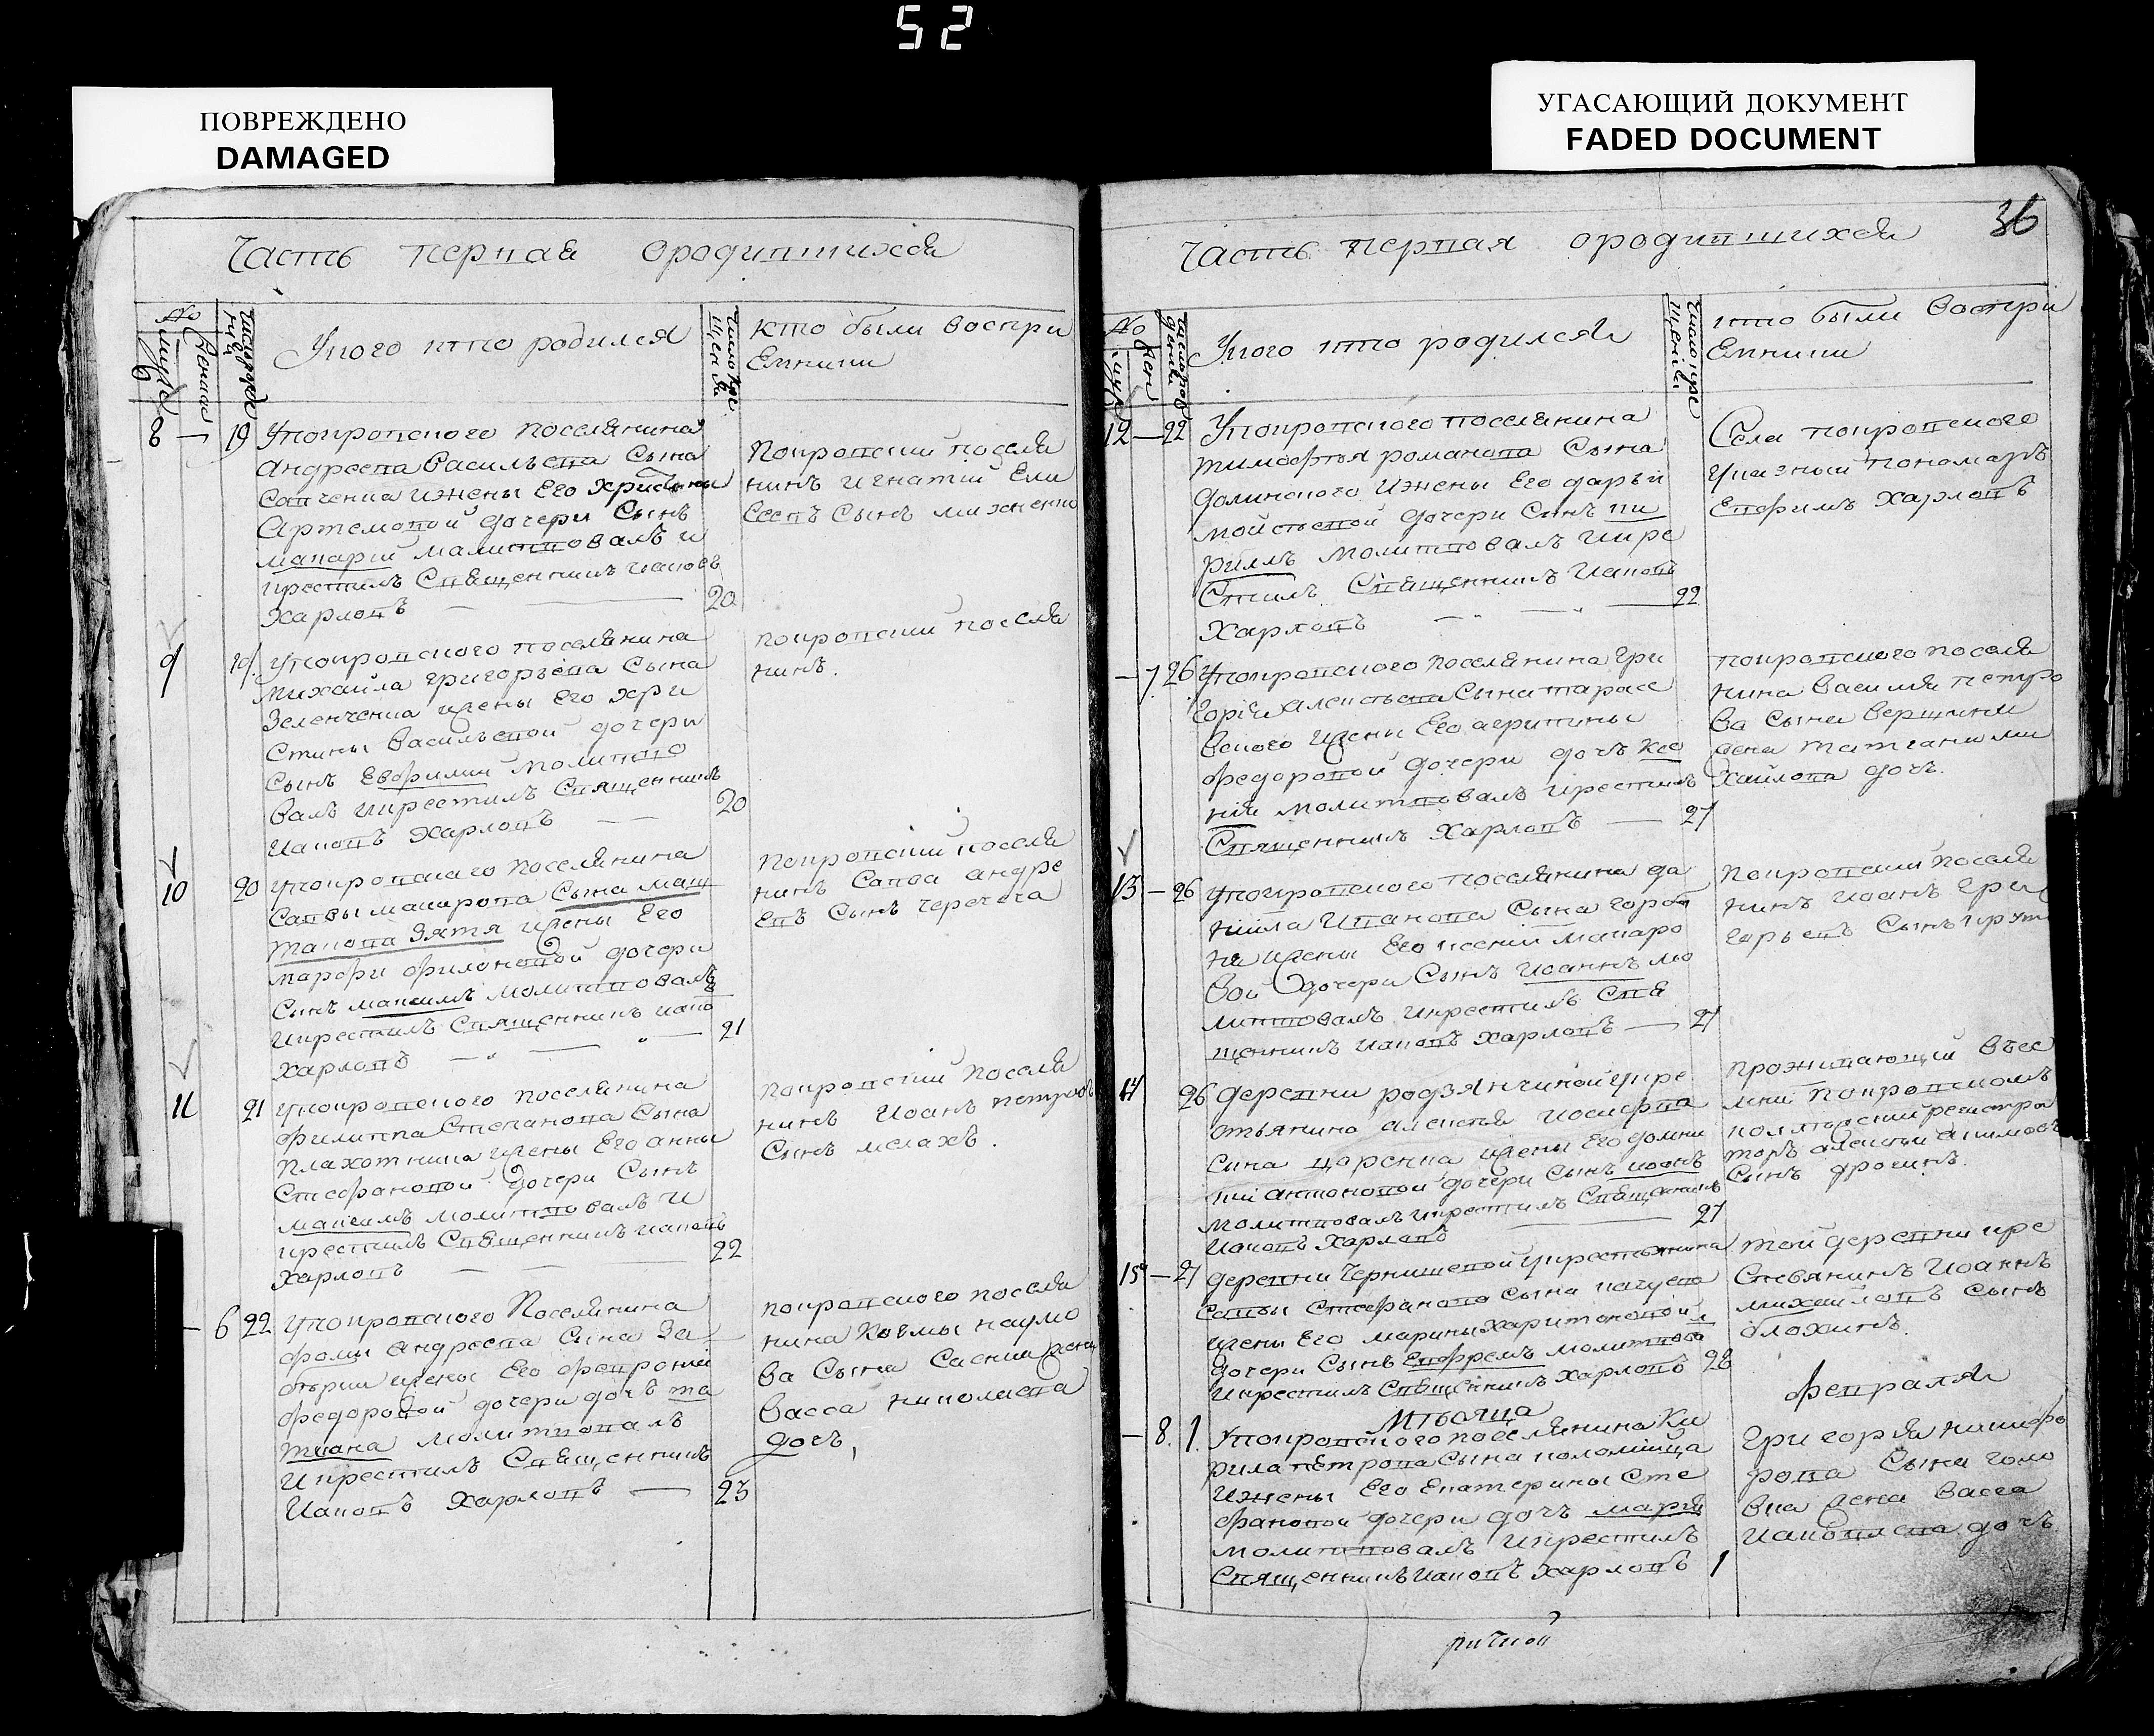 52
ПОВРЕЖДЕНО
DAMAGED
УГАСАЮЩИЙ ДОКУМЕНТ
FADED DOCUMENT
Часть первая ородившихся
№
мужс
женски
число рожде
нія
Укого кто родился
число кре
щенія
кто были воспри
Емники
8 — 19 Упокровского поселянина
андреева васильева Сына
Савченка ижены Его христины
Артемовой дочери Сынъ
макарій малитвовалъ и
крестилъ Священникъ иаковъ
Харловъ — 20
Покровскій поселя
нинъ игнатій Ели
Сеевъ Сынъ михненко
9 19 Упокровского поселянина
михайла григорьева Сына
Зеленченка ижены Его хри
стины васильевой дочери
Сынъ Евфимій молитво
валъ икрестилъ Священникъ
иаковъ Харловъ — 20
покровскій поселя
нинъ.
10 20 Упокровскаго поселянина
Саввы макарова Сына маш
такова Зятя ижены Его
марфы филоновой дочери
Сынъ максимъ молитвовалъ
икрестилъ Священникъ иако
Харловъ — 21
покровскій поселя
нинъ Савва андре
Евъ Сынъ черечеча
11 21 Упокровского поселянина
филиппа Степанова Сына
плахотника ижены Его анны
Стефановой дочери Сынъ
максимъ молитвовалъ и
крестилъ Священникъ иаковъ
Харловъ — 22
покровскій поселя
нинъ Иоанъ петровъ
Сынъ мелахъ.
— 6 22 Упокровского Поселянина
фомы андреева Сына За
ижены Его февроніи
федоровой дочери дочь та
тиана молитвовалъ
икрестилъ Священникъ
Иаковъ Харловъ — 23
покровского поселя
нина Козмы наумо
ва Сына жена
васса николаева
дочь,
36
Часть первая ородившихся
№
муж
жен
число рож
денія
Укого кто родился
число кре
щенія
кто были воспри
Емники
12 — 22 Упокровского поселянина
тимофея романова Сына
долинского ижены Его дарьи
мойсеевой дочери Сынъ ки
риллъ молитвовалъ икре
стилъ Священникъ Иаковъ
Харловъ — 22
Села покровского
указный пономарь
Евфимъ Харловъ
— 7 26 Упокровского поселянина гри
горія алексеева Сына тарасе
вского жены Его агрипины
федоровой дочери дочь ксе
нія молитвовалъ икрестилъ
Священникъ Харловъ — 27
покровского поселя
нина василія петро
ва Сына вершини
жена татиана ми
хайлова дочь.
13 — 26 Упокровского поселянина да
ніила Иванова Сына горо
ижены Его ксеніи макаро
вой дочери Сынъ иоаннъ мо
литвовалъ икрестилъ Свя
щенникъ иаковъ Харловъ — 27
покровскій поселя
нинъ иоанъ гри
горьевъ Сынъ
14 26 деревни родзянчиной укре
стьянина алексея Иосифова
Сына царенка ижены Его домни
кіи антоновой дочери Сынъ иоанъ
молитвовалъ икрестилъ Священникъ
Иаковъ Харловъ — 27
проживающій въсе
леніи покровскомъ
колежскій регистра
торъ алексей акимовъ
Сынъ дрогинъ.
15 — 27 деревни Чернышевой укрестьянина
Саввы Стефанова Сына
ижены Его марины Харитоновой
дочери Сынъ Ефремъ молитвова
икрестилъ Священникъ Харловъ 28
той деревни кре
стьянинъ Иоаннъ
михайловъ сынъ
блохинъ.
Мьсяца февраля
— 8. 1. Упокровского поселянина Ки
рила петрова Сына коломійца
Ижены Его Екатерины Сте
фановой дочери дочь марія
молитвовалъ икрестилъ
Священникъ иаковъ Харловъ 1
григорія никифо
рова Сына голо
вка жена васса
иаковлева дочь